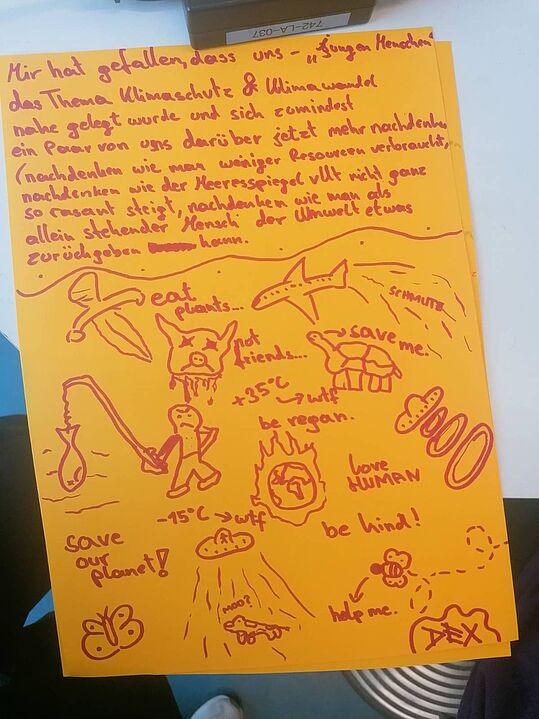 742-LA-037
Mir hat gefallen, dass uns - „jungen Menschen"
das Thema Klimaschutz & Klimawandel
nahe gelegt wurde und sich zumindest
ein Paar von uns darüber jetzt mehr nachdenken
(nachdenken wie man weniger Resourcen verbraucht,
nachdenken wie der Meeresspiegel vllt nicht ganz
so rasant steigt, nachdenken wie man als
allein stehender Mensch der Umwelt etwas
zurückgeben kann.
eat
plants...
SCHMUTZ
not
friends...
save me.
+35°C → wtf
be vegan.
love
HUMAN
-15°C → wtf
be kind!
save
our
planet!
MOO?
help me.